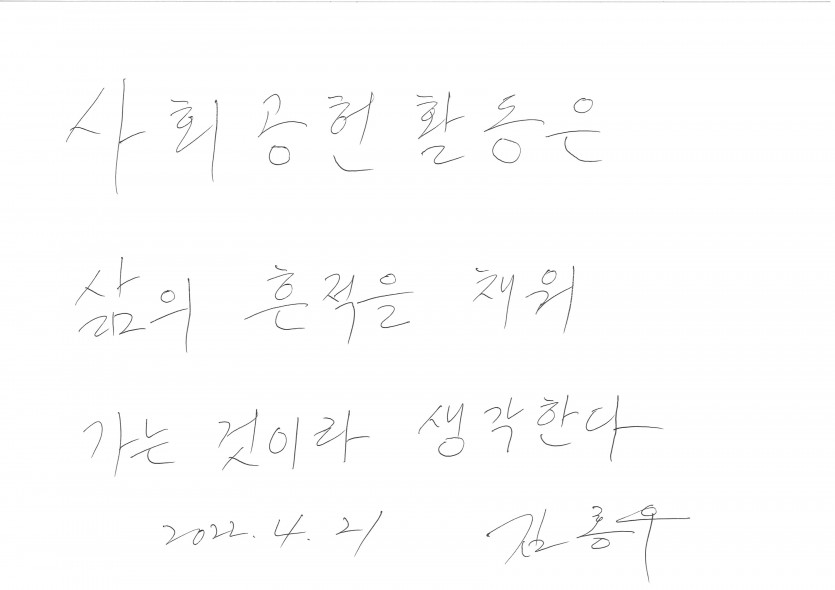 사회공헌활동은
삶의 흔적을 채워
가는 것이라 생각한다
2022. 4. 21 김홍우